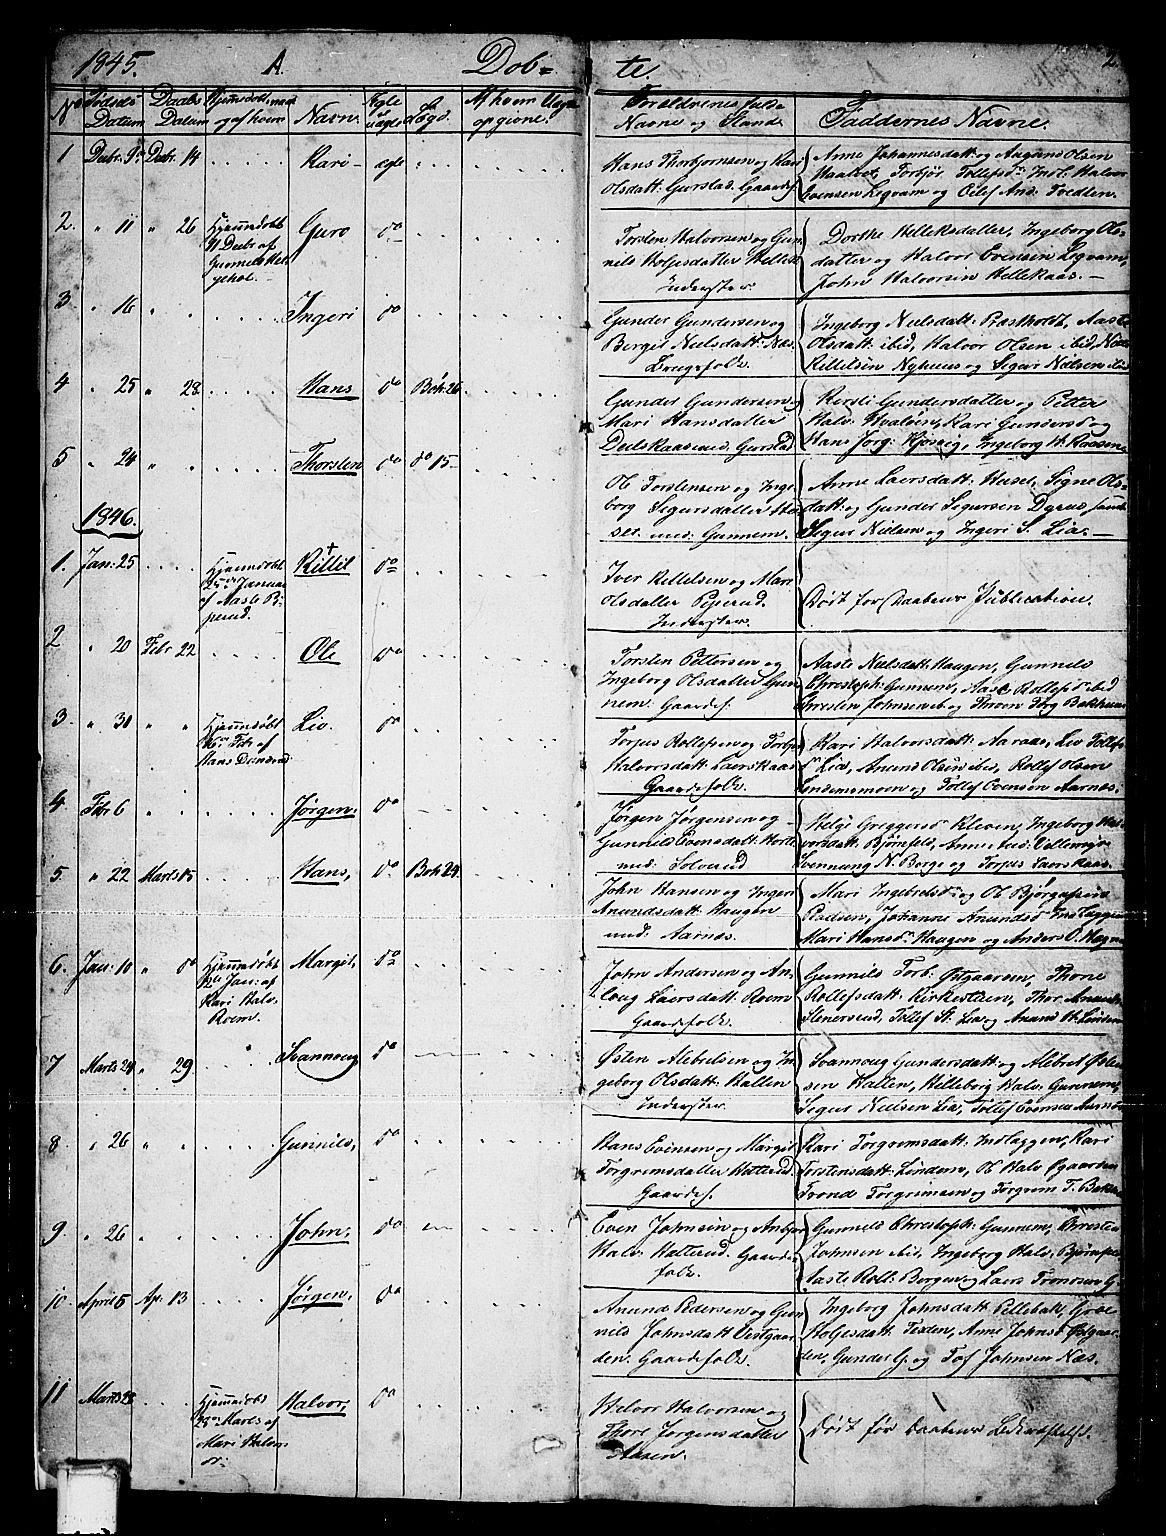 1845. A. Dob= te. 2
No Fødsels Datum
Daabs Datum
Hjemmedøbt, naar og af hvem
Navn.
Ægte uægte
Lægd.
Af hvem Uægte opgivne.
Forældrenes fulde Navne og Stand.
Faddernes Navne.
1 Decbr. 9de Decbr. 14 Kari ægte
Hans Thorbjørnsen og Kari
Olsdatt: Gurstad. Gaardf.
Anne Johannesdatt: og Aagaand Olsen
Evensen Ligvam og Ellef And: Tvedten.
2. " 11 " 26 Hjemmedøbt
11 Decbr af
Gunnild Hel
Guro do
Torsten Halvorsen og Gun
nild Holjesdatter Hellek
Inderster.
Dorthe Helleksdatter, Ingeborg Ols-
datter og Halvor Evensen Ligvam,
John Halvorsen Hellekaas.
3 " 16 Ingeri do
Gunder Gundersen og
Berget Nielsdatt: Næs.
Brugsfolk.
Ingeborg Nielsdatt: Præstholdt, Aaste
Olsdatt: ibid, Halvor Olsen ibid, Niels
Kittelsen Nyhuus og Sigur Nielsen ibid
4 " 25 " 28 Hans do Boh: 26
Gunder Gundersen og
Mari Hansdatter
Gurstad
Kersti Gundersdatter og Peder
Halv: Hvalöen, Kari Gundersd og
Hans Jørg: Hjøsvig, Ingeborg H. Raasen
5 " 24 Thorsten do do 15
Ole Torstensen og Inge
borg Sigursdatter Hu
set und: Gunnem.
Anne Laersdatt: Huset, Signe Ols=
datt: og Gunder Sigursen Dyrud samt
Sigur Nielsen og Ingeri S. Lia.
1846.
1. Jan: 25 Hjemmedøbt
25de Januar
af Aaste P:
perud.
Kittil do
Iver Kittelsen og Mari
Olsdatter Piperud.
Inderster.
Død før Daabens Publication.
2 " 20 Febr 22 Ole do
Torsten Pettersen og
Ingeborg Olsdatter Gun
nem. Gaardf.
Aaste Nielsdatt: Haugen, Gunnild
Christoph: Gunnem, Aase Rollefsd ibid
Christen Johnsen ib og
3. " 31 " " Hjemmedøbt
af
Hans
Liv. do
Torjus Rollefsen og Torbjør
Halvorsdatt: Laerskaas
Gaardfolk.
Kari Halvorsdatt: Aaraas, Liv Tollefs
d Lia, Anund Olsen ibid, Rollef Olsen
Lindemsmoen og Tollef Evensen Aarnes.
4 Febr 6 Jørgen. do
Jørgen Jørgensen og
Gunnild Evensdatt: Holte
und: Solverud
Helge Greggersd Kleven, Ingeborg Hal
vorsdatt: Bjørnfeld, Anne
N. Berge og Torjus Laerskaas.
5 " 22 Marts 15 Hans, do Boh 24
John Hansen og Ingeri
Anundsdatt: Haugen
und: Aarnes.
Mari Ingebretsd og Ole Bjørgufsen
Rudsen, Johanne Anundsd Indlaggen
Mari Hansd Haugen og Anders O. Hogna
6. Jan: 10 " do Hjemmedøbt
Jan: af
Kari Halv.
Roem.
Margit, do
John Andersen og An
laug Laersdatt: Roem
Gaardfolk.
Gunnild Torb. Østgaarden, Thone
Rollefsdatt: Kirkestuen, Thor Anunds
Stenersrud, Tollef St. Lia og Anund H. Linden
7 Marts 24 " 29 Svannoug do
Østen Alebretsen og In
geborg Olsdatt: Hallen
Inderster.
Svannoug Gundersdatt: og Alebret Østen
sen Hallen, Hilleborg Halv: Gunnem,
Sigur Nielsen Lia, Tollef Evensen Aarnes
8 " 26 " " Gunnild, do
Hans Evensen og Margit
Torgrimsdatter Hatterud.
Gaardf.
Kari Torgrimsdatt: Indlaggen, Kari
Torstensdatt: Lindem, Ole Halv Øgaarden
Trond Torgrimsen og Torgrim T. Bakka
9 " 26 John, do
Even Johnsen og Anbjør
Halv: Hatterud. Gaard
folk.
Gunnild Christoph: Gunnem, Christen
Johnsen ibid, Ingeborg Halv: Bjørnfeld
Aaste Roll: Bergen og Laers Tronsen G.
10. April 5 Ap. 13 Jørgen. do
Anund Pedersen og Gun
nild Johnsdatt: Vestgaar
den. Gaardfolk.
Ingeborg Johnsdatt: Pellebak, Groe
Holgesdatt: Tisden, Anne Johnsd Østgaar
den, Gunder G. og Tof Johnsen Næs.
11 Marts 28 Hjemmedøbt
28de Marts af
Mari Halv
Halvor, do
Halvor Halvorsen og
Thore Jørgensdatter
Aasen.
Død før Daabens Bekræftelse.